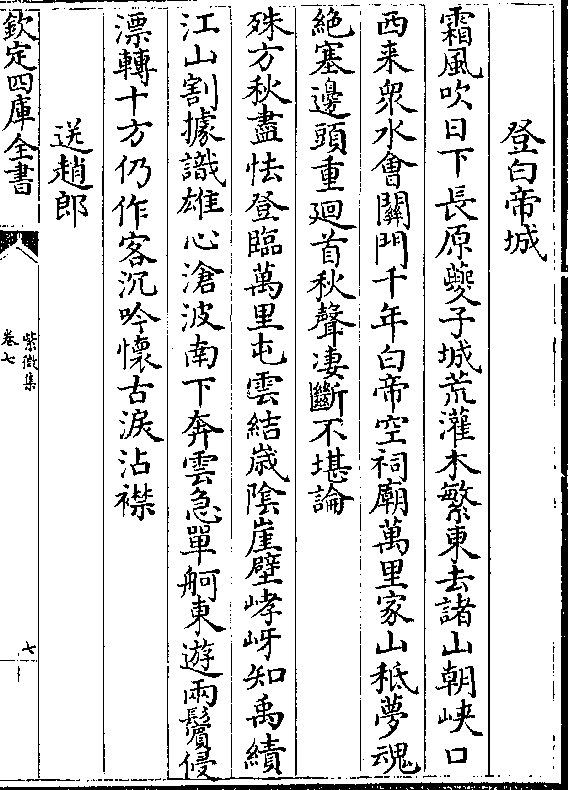 登白帝城
霜風吹日下長原夔子城荒灌木繁東去諸山朝峽口
西来衆水會關門千年白帝空祠廟萬里家山秪夢魂
絶塞邊頭重廻首秋聲凄斷不堪論
殊方秋盡怯登臨萬里屯雲結嵗隂崖壁崢岈知禹績
江山割據識雄心滄波南下奔雲急單舸東遊兩鬢侵
漂轉十方仍作客沉吟懷古淚沾襟
送趙郎
欽定四庫全書
紫微集
卷七
七